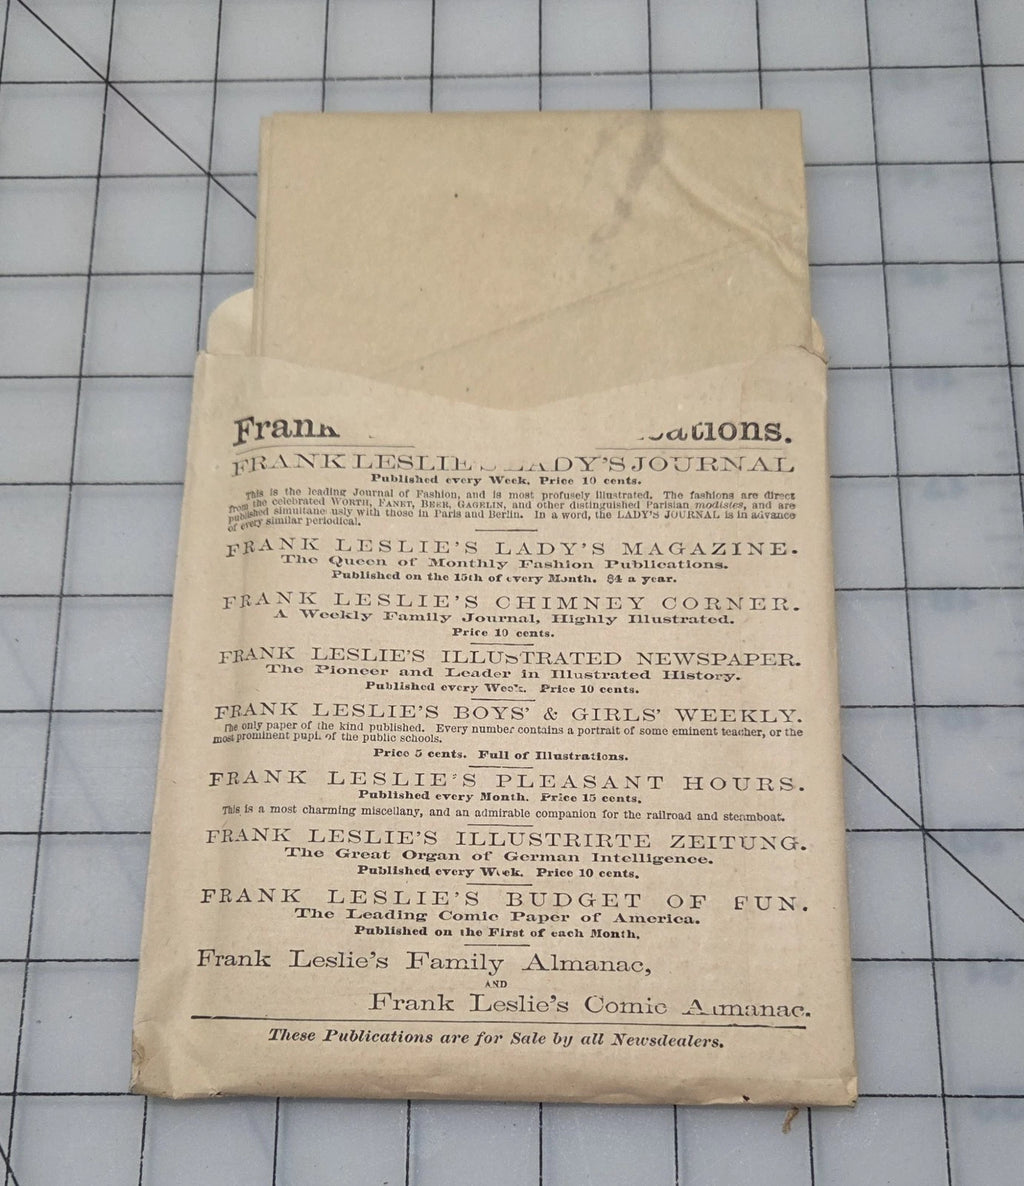 Frank
FRANK LESLIE'S LADY'S JOURNAL
Published every Week. Price 10 cents.
This is the leading Journal of Fashion, and is most profusely illustrated. The fashions are direct
from the celebrated WORTH, FANET, BEER, GAGELIN, and other distinguished Parisian modistes, and are
published simultane usly with those in Paris and Berlin. In a word, the LADY'S JOURNAL is in advance
of every similar periodical.
FRANK LESLIE'S LADY'S MAGAZINE.
The Queen of Monthly Fashion Publications.
Published on the 15th of every Month. $4 a year.
FRANK LESLIE'S CHIMNEY CORNER.
A Weekly Family Journal, Highly Illustrated.
Price 10 cents.
FRANK LESLIE'S ILLUSTRATED NEWSPAPER.
The Pioneer and Leader in Illustrated History.
Published every Week. Price 10 cents.
FRANK LESLIE'S BOYS' & GIRLS' WEEKLY.
The only paper of the kind published. Every number contains a portrait of some eminent teacher, or the
most prominent pupi. of the public schools.
Price 5 cents. Full of Illustrations.
FRANK LESLIE'S PLEASANT HOURS.
Published every Month. Price 15 cents.
This is a most charming miscellany, and an admirable companion for the railroad and steamboat.
FRANK LESLIE'S ILLUSTRIRTE ZEITUNG.
The Great Organ of German Intelligence.
Published every Week. Price 10 cents.
FRANK LESLIE'S BUDGET OF FUN.
The Leading Comic Paper of America.
Published on the First of each Month.
Frank Leslie's Family Almanac,
AND
Frank Leslie's Comic Almanac.
These Publications are for Sale by all Newsdealers.